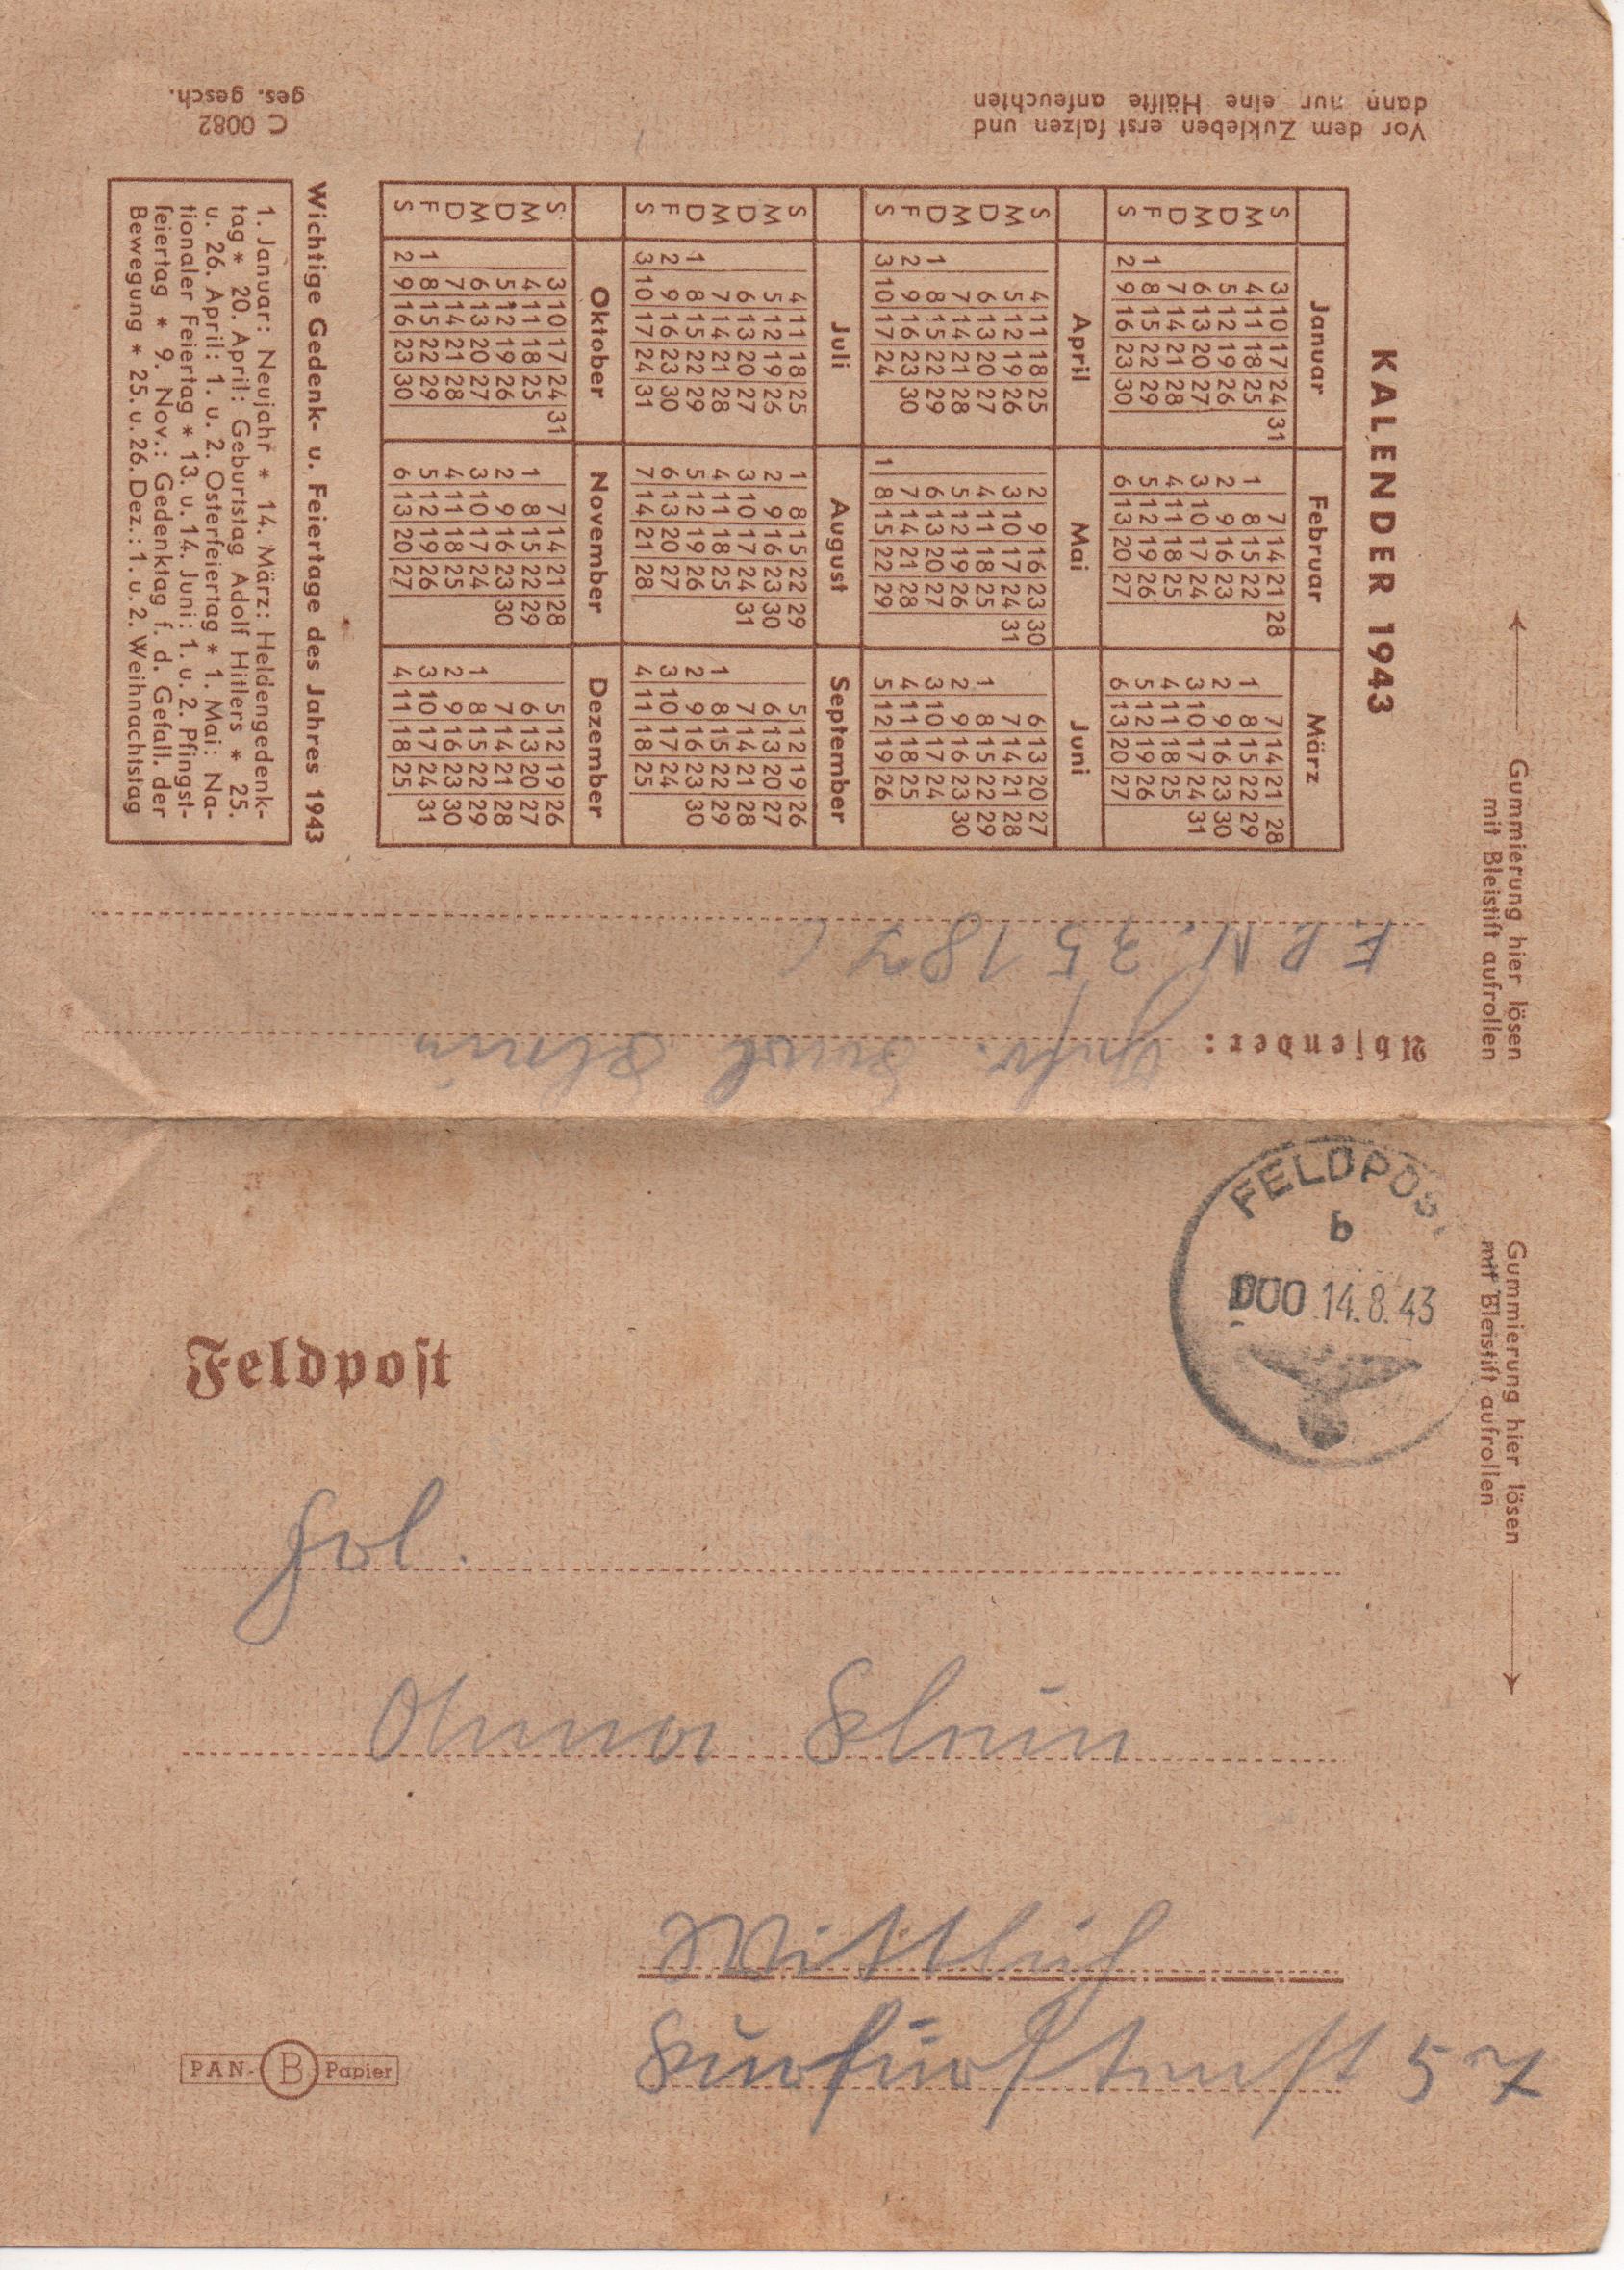 Vor dem Zukleben erst falzen und
dann nur eine Hälfte anfeuchten
C 0082
ges. gesch.
Gummierung hier lösen
mit Bleistift aufrollen
KALENDER 1943
Januar Februar März
S 3 10 17 24 31 7 14 21 28 7 14 21 28
M 4 11 18 25 1 8 15 22 1 8 15 22 29
D 5 12 19 26 2 9 16 23 2 9 16 23 30
M 6 13 20 27 3 10 17 24 3 10 17 24 31
D 7 14 21 28 4 11 18 25 4 11 18 25
F 1 8 15 22 29 5 12 19 26 5 12 19 26
S 2 9 16 23 30 6 13 20 27 6 13 20 27
April Mai Juni
S 4 11 18 25 2 9 16 23 30 6 13 20 27
M 5 12 19 26 3 10 17 24 31 7 14 21 28
D 6 13 20 27 4 11 18 25 1 8 15 22 29
M 7 14 21 28 5 12 19 26 2 9 16 23 30
D 1 8 15 22 29 6 13 20 27 3 10 17 24
F 2 9 16 23 30 7 14 21 28 4 11 18 25
S 3 10 17 24 1 8 15 22 29 5 12 19 26
Juli August September
S 4 11 18 25 1 8 15 22 29 5 12 19 26
M 5 12 19 26 2 9 16 23 30 6 13 20 27
D 6 13 20 27 3 10 17 24 31 7 14 21 28
M 7 14 21 28 4 11 18 25 1 8 15 22 29
D 1 8 15 22 29 5 12 19 26 2 9 16 23 30
F 2 9 16 23 30 6 13 20 27 3 10 17 24
S 3 10 17 24 31 7 14 21 28 4 11 18 25
Oktober November Dezember
S 3 10 17 24 31 7 14 21 28 5 12 19 26
M 4 11 18 25 1 8 15 22 29 6 13 20 27
D 5 12 19 26 2 9 16 23 30 7 14 21 28
M 6 13 20 27 3 10 17 24 1 8 15 22 29
D 7 14 21 28 4 11 18 25 2 9 16 23 30
F 1 8 15 22 29 5 12 19 26 3 10 17 24 31
S 2 9 16 23 30 6 13 20 27 4 11 18 25
Wichtige Gedenk- u. Feiertage des Jahres 1943
1. Januar: Neujahr * 14. März: Heldengedenk-
tag * 20. April: Geburtstag Adolf Hitlers * 25.
u. 26. April: 1. u. 2. Osterfeiertag * 1. Mai: Na-
tionaler Feiertag * 13. u. 14. Juni: 1. u. 2. Pfingst-
feiertag * 9. Nov.: Gedenktag f. d. Gefall. der
Bewegung * 25. u. 26. Dez.: 1. u. 2. Weihnachtstag
Absender: Klein
F.P.N.
FELDPOS
b
14.8.43
Gummierung hier lösen
mit Bleistift aufrollen
Feldpost
Anna Klein
Wittlich
Kurfürstenst 57
PAN-B Papier